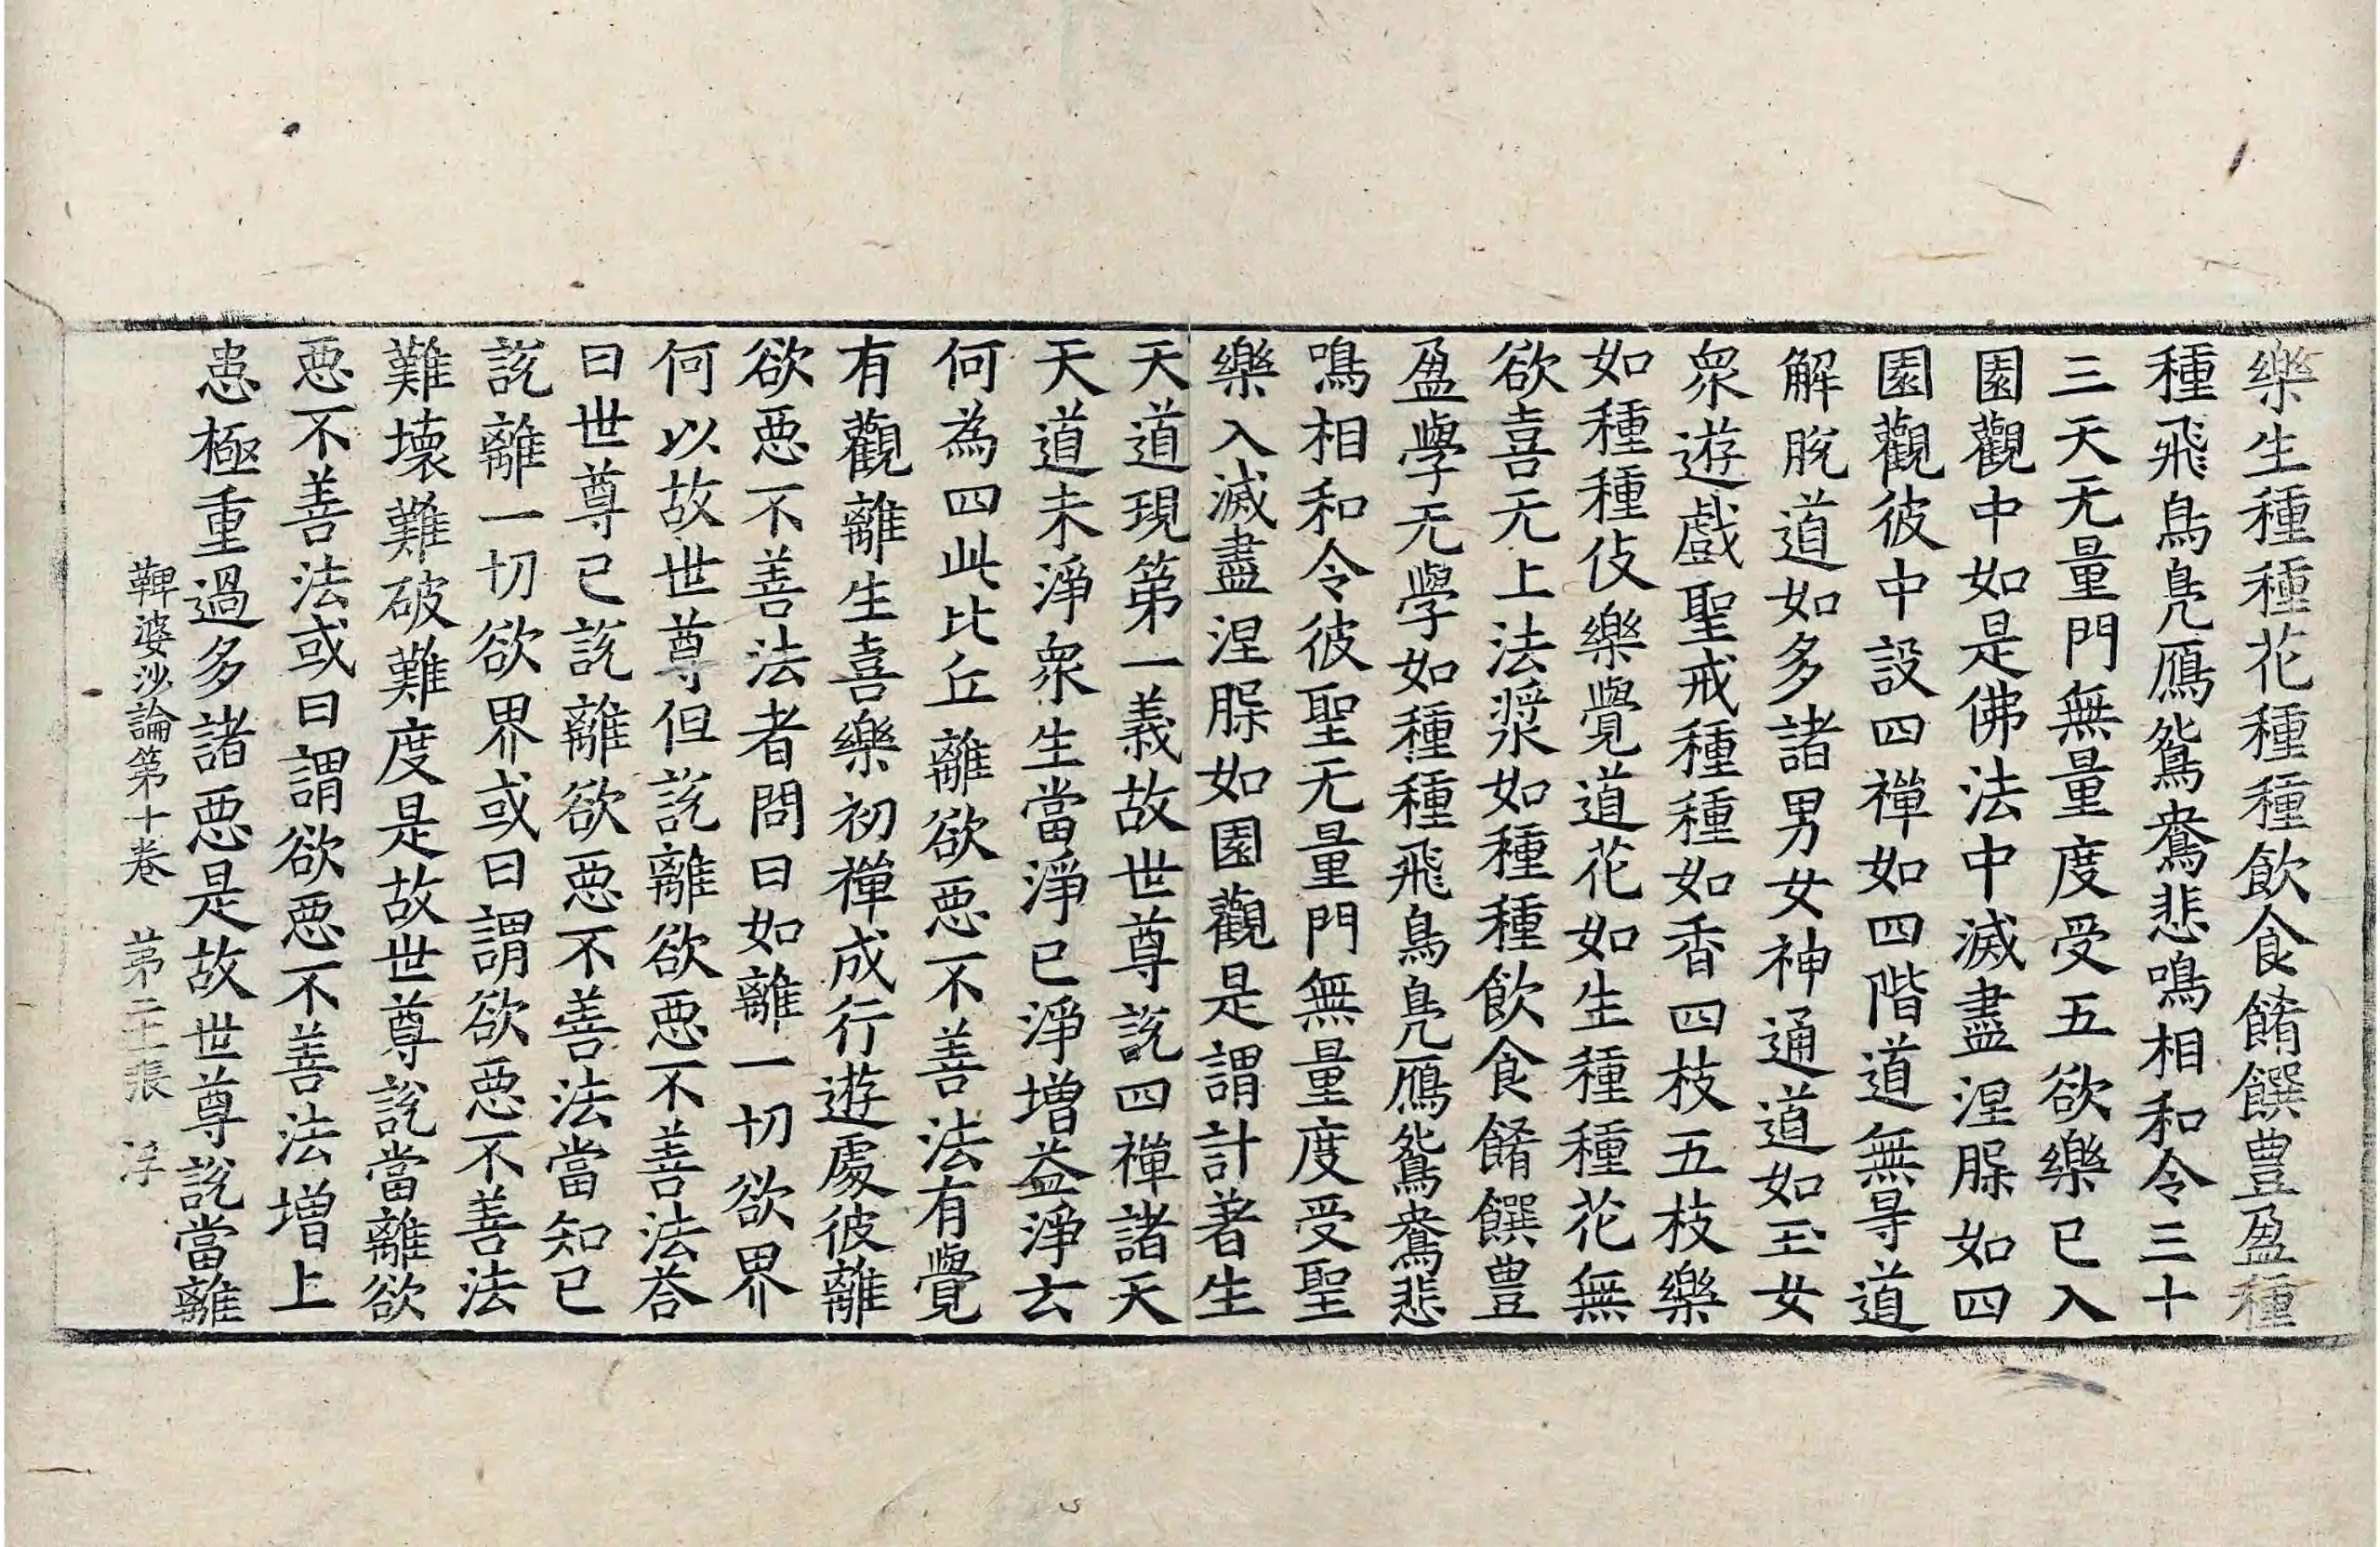 樂生種種花種種飲食餚饌豊盈種
種飛鳥鳧鴈鴛鴦悲鳴相和令三十
三天无量門無量度受五欲樂已入
園觀中如是佛法中滅盡涅槃如四
園觀彼中設四禪如四階道無㝵道
解脫道如多諸男女神通道如玉女
眾遊戲聖戒種種如香四枝五枝樂
如種種伎樂覺道花如生種種花無
欲喜无上法漿如種種飲食餚饌豊
盈學无學如種種飛鳥鳧鴈鴛鴦悲
鳴相和令彼聖无量門無量度受聖
樂入滅盡涅槃如園觀是謂計著生
天道現第一義故世尊説四禪諸天
天道未淨眾生當淨已淨增益淨云
何為四此比丘離欲惡不善法有覺
有觀離生喜樂初禪成行遊處彼離
欲惡不善法者問曰如離一切欲界
何以故世尊但説離欲惡不善法荅
曰世尊已説離欲惡不善法當知已
説離一切欲界或曰謂欲惡不善法
難壞難破難度是故世尊説當離欲
惡不善法或曰謂欲惡不善法增上
患極重過多諸惡是故世尊説當離
鞞婆沙論第十卷　第二十張　浮